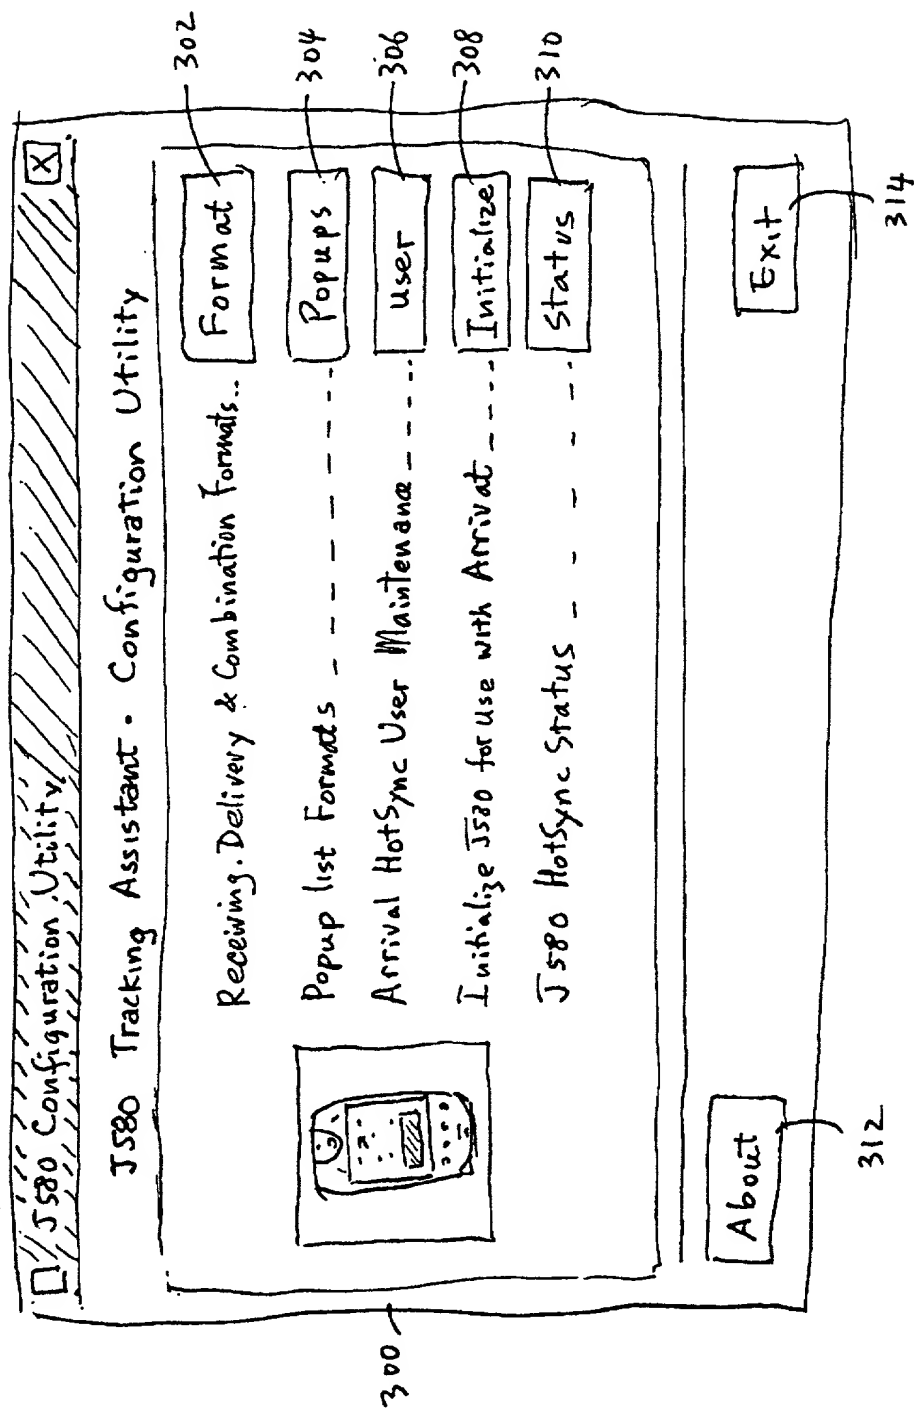 J580 Configuration Utility
X
J580 Tracking Assistant - Configuration Utility
Receiving. Delivery & Combination Formats... Format
Popup list Formats - - - - - - - - - Popups
Arrival HotSync User Maintenance - - - - - User
Initialize J580 for use with Arrivat - - - - Initialize
J580 HotSync Status - - - - - - - Status
About
Exit
300
302
304
306
308
310
312
314